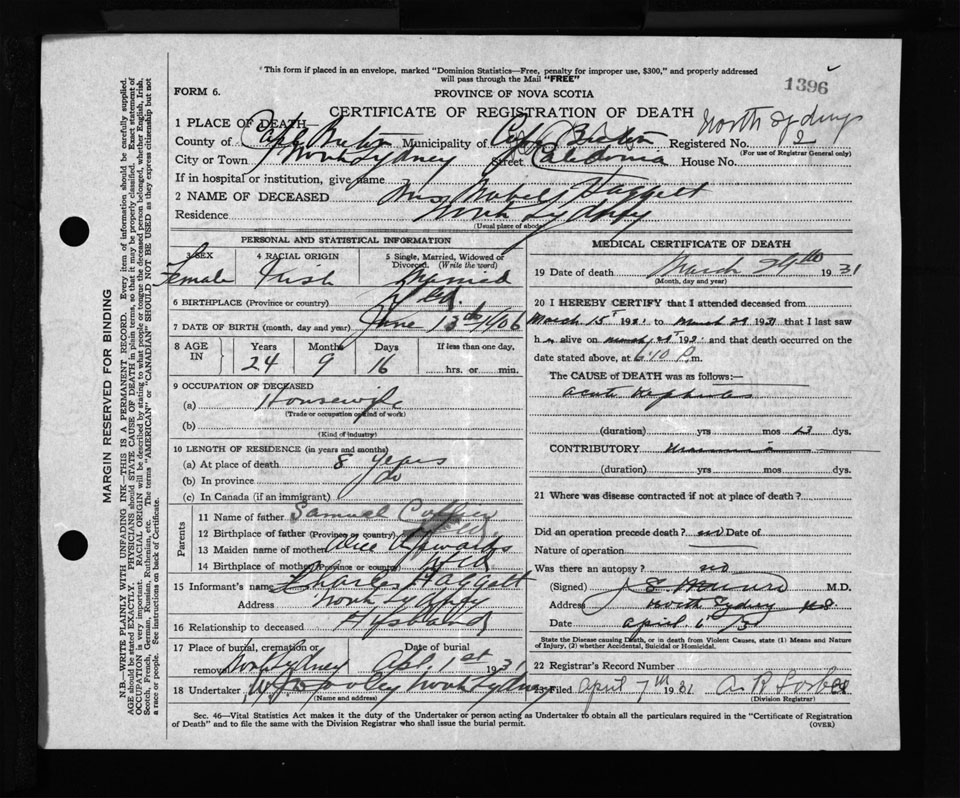 *This form if placed in an envelope, marked "Dominion Statistics—Free, penalty for improper use, $300," and properly addressed
will pass through the Mail "FREE"
1396
FORM 6.
PROVINCE OF NOVA SCOTIA
CERTIFICATE OF REGISTRATION OF DEATH
North Sydney
1 PLACE OF DEATH—
County of Cape Breton Municipality of Cape Breton Registered No. 2
(For use of Registrar General only)
City or Town North Sydney Street Caledonia House No.
If in hospital or institution, give name
2 NAME OF DECEASED Mrs Mabel Haggett
Residence North Sydney
(Usual place of abode)
PERSONAL AND STATISTICAL INFORMATION
3 SEX
Female
4 RACIAL ORIGIN
Irish
5 Single, Married, Widowed or
Divorced. (Write the word)
Married
6 BIRTHPLACE (Province or country) Nfld.
7 DATE OF BIRTH (month, day and year) June 13th 1906
8 AGE IN
Years Months Days If less than one day.
24 9 16 hrs. or min.
9 OCCUPATION OF DECEASED
(a) Housewife
(Trade or occupation or kind of work)
(b)
(Kind of industry)
10 LENGTH OF RESIDENCE (in years and months)
(a) At place of death 8 years
(b) In province do
(c) In Canada (if an immigrant)
Parents
11 Name of father Samuel
12 Birthplace of father (Province or country) Nfld
13 Maiden name of mother Alice Edwards
14 Birthplace of mother (Province or country) Nfld
15 Informant's name Charles Haggett
Address North Sydney
16 Relationship to deceased Husband
17 Place of burial, cremation or
removal North Sydney
Date of burial
Apl. 1st 1931
18 Undertaker W. J. Dooley North Sydney
(Name and address)
MEDICAL CERTIFICATE OF DEATH
19 Date of death March 29th 1931
(Month, day and year)
20 I HEREBY CERTIFY that I attended deceased from
March 15th 1931 to March 29 1931 that I last saw
h alive on March 29th 193 and that death occurred on the
date stated above, at 6:10 P.m.
The CAUSE of DEATH was as follows:—
Acute Nephritis
(duration) yrs mos 23 dys.
CONTRIBUTORY
(duration) yrs mos dys.
21 Where was disease contracted if not at place of death?
Did an operation precede death? no Date of
Nature of operation
Was there an autopsy? no
(Signed) J. E. Munro M.D.
Address North Sydney N.S.
Date April 6th/31
State the Disease causing Death, or in death from Violent Causes, state (1) Means and Nature
of Injury, (2) whether Accidental, Suicidal or Homicidal.
22 Registrar's Record Number
23 Filed April 7th 1931 A. R.
(Division Registrar)
Sec. 46—Vital Statistics Act makes it the duty of the Undertaker or person acting as Undertaker to obtain all the particulars required in the "Certificate of Registration
of Death" and to file the same with the Division Registrar who shall issue the burial permit.
(OVER)
MARGIN RESERVED FOR BINDING
N.B.—WRITE PLAINLY WITH UNFADING INK—THIS IS A PERMANENT RECORD. Every item of information should be carefully supplied.
AGE should be stated EXACTLY. PHYSICIANS should STATE CAUSE OF DEATH in plain terms, so that it may be properly classified. Exact statement of
OCCUPATION is very important. RACIAL ORIGIN will be described by stating to what people or tongue the deceased person belonged, whether English, Irish,
Scotch, French, German, Russian, Ruthenian, etc. The terms "AMERICAN" or "CANADIAN" SHOULD NOT BE USED as they express citizenship but not
a race or people. See instructions on back of Certificate.